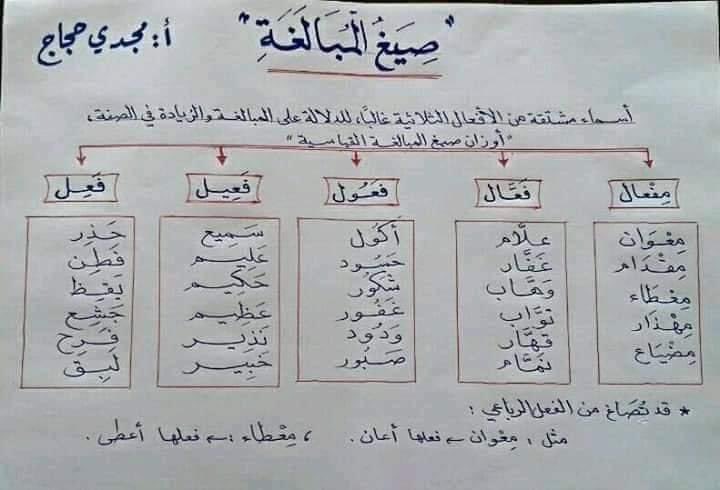 "صِيَغُ الْمُبَالَغَةِ"
أ: مجدي حجاج
أسماء مشتقة من الأفعال الثلاثية غالبًا، للدلالة على المبالغة والزيادة في الصفة،
"أوزان صيغ المبالغة القياسية"
مِفْعال فَعَّال فَعُول فَعِيل فَعِل
مِعْوَان علَّام أَكُول سَمِيع حَذِر
مِقْدَام غَفَّار حَسُود عَلِيم فَطِن
مِعْطَاء وَهَّاب شَكُور حَكِيم يَقِظ
مِهْذَار توَّاب غَفُور عَظِيم جَشِع
مِضْيَاع قهَّار وَدُود نَذِير فَرِح
نمَّام صَبُور خَبِير لَبِق
* قد تُصَاغ من الفعل الرباعي :
مثل : مِعْوان ← فعلها أعان. ، مِعْطاء : ← فعلها أعطى.